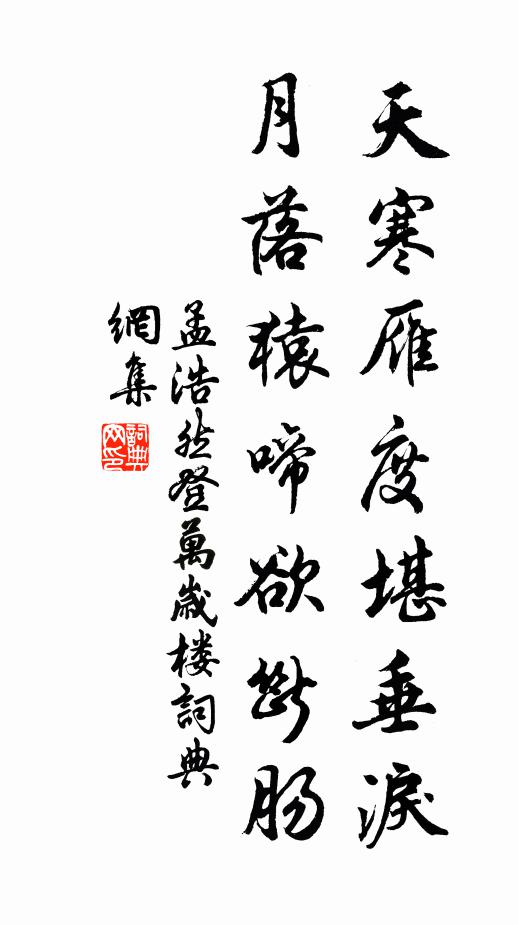 天寒雁度堪垂淚
月落猿啼欲斷腸
孟浩然登萬歲楼詞典
網集
詞典網印